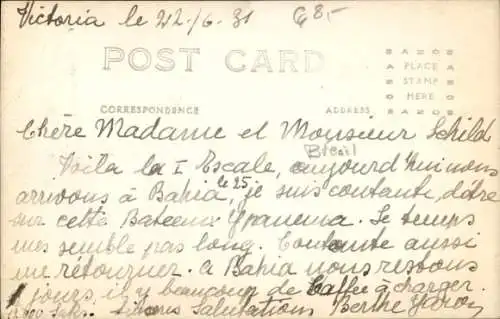 Victoria le 22/6. 31 68,-
POST CARD
AZO
PLACE
STAMP
HERE
AZO
CORRESPONDENCE ADDRESS
Chère Madame et Monsieur Schild
Bresil
Voila la I Escale, aujourd'hui nous
arrivons à Bahia le 25, je suis contante, d'être
sur cette Bateeux Ypanema. Le temps
mes semble pas long. Contante aussi
me rétourner. a Bahia nous restons
jours, il y beaucoup de Caffee à charger.
Salutations Berthe